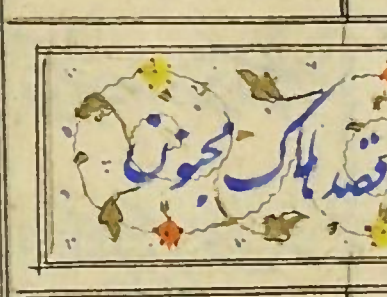 قصد هلاک مجنون